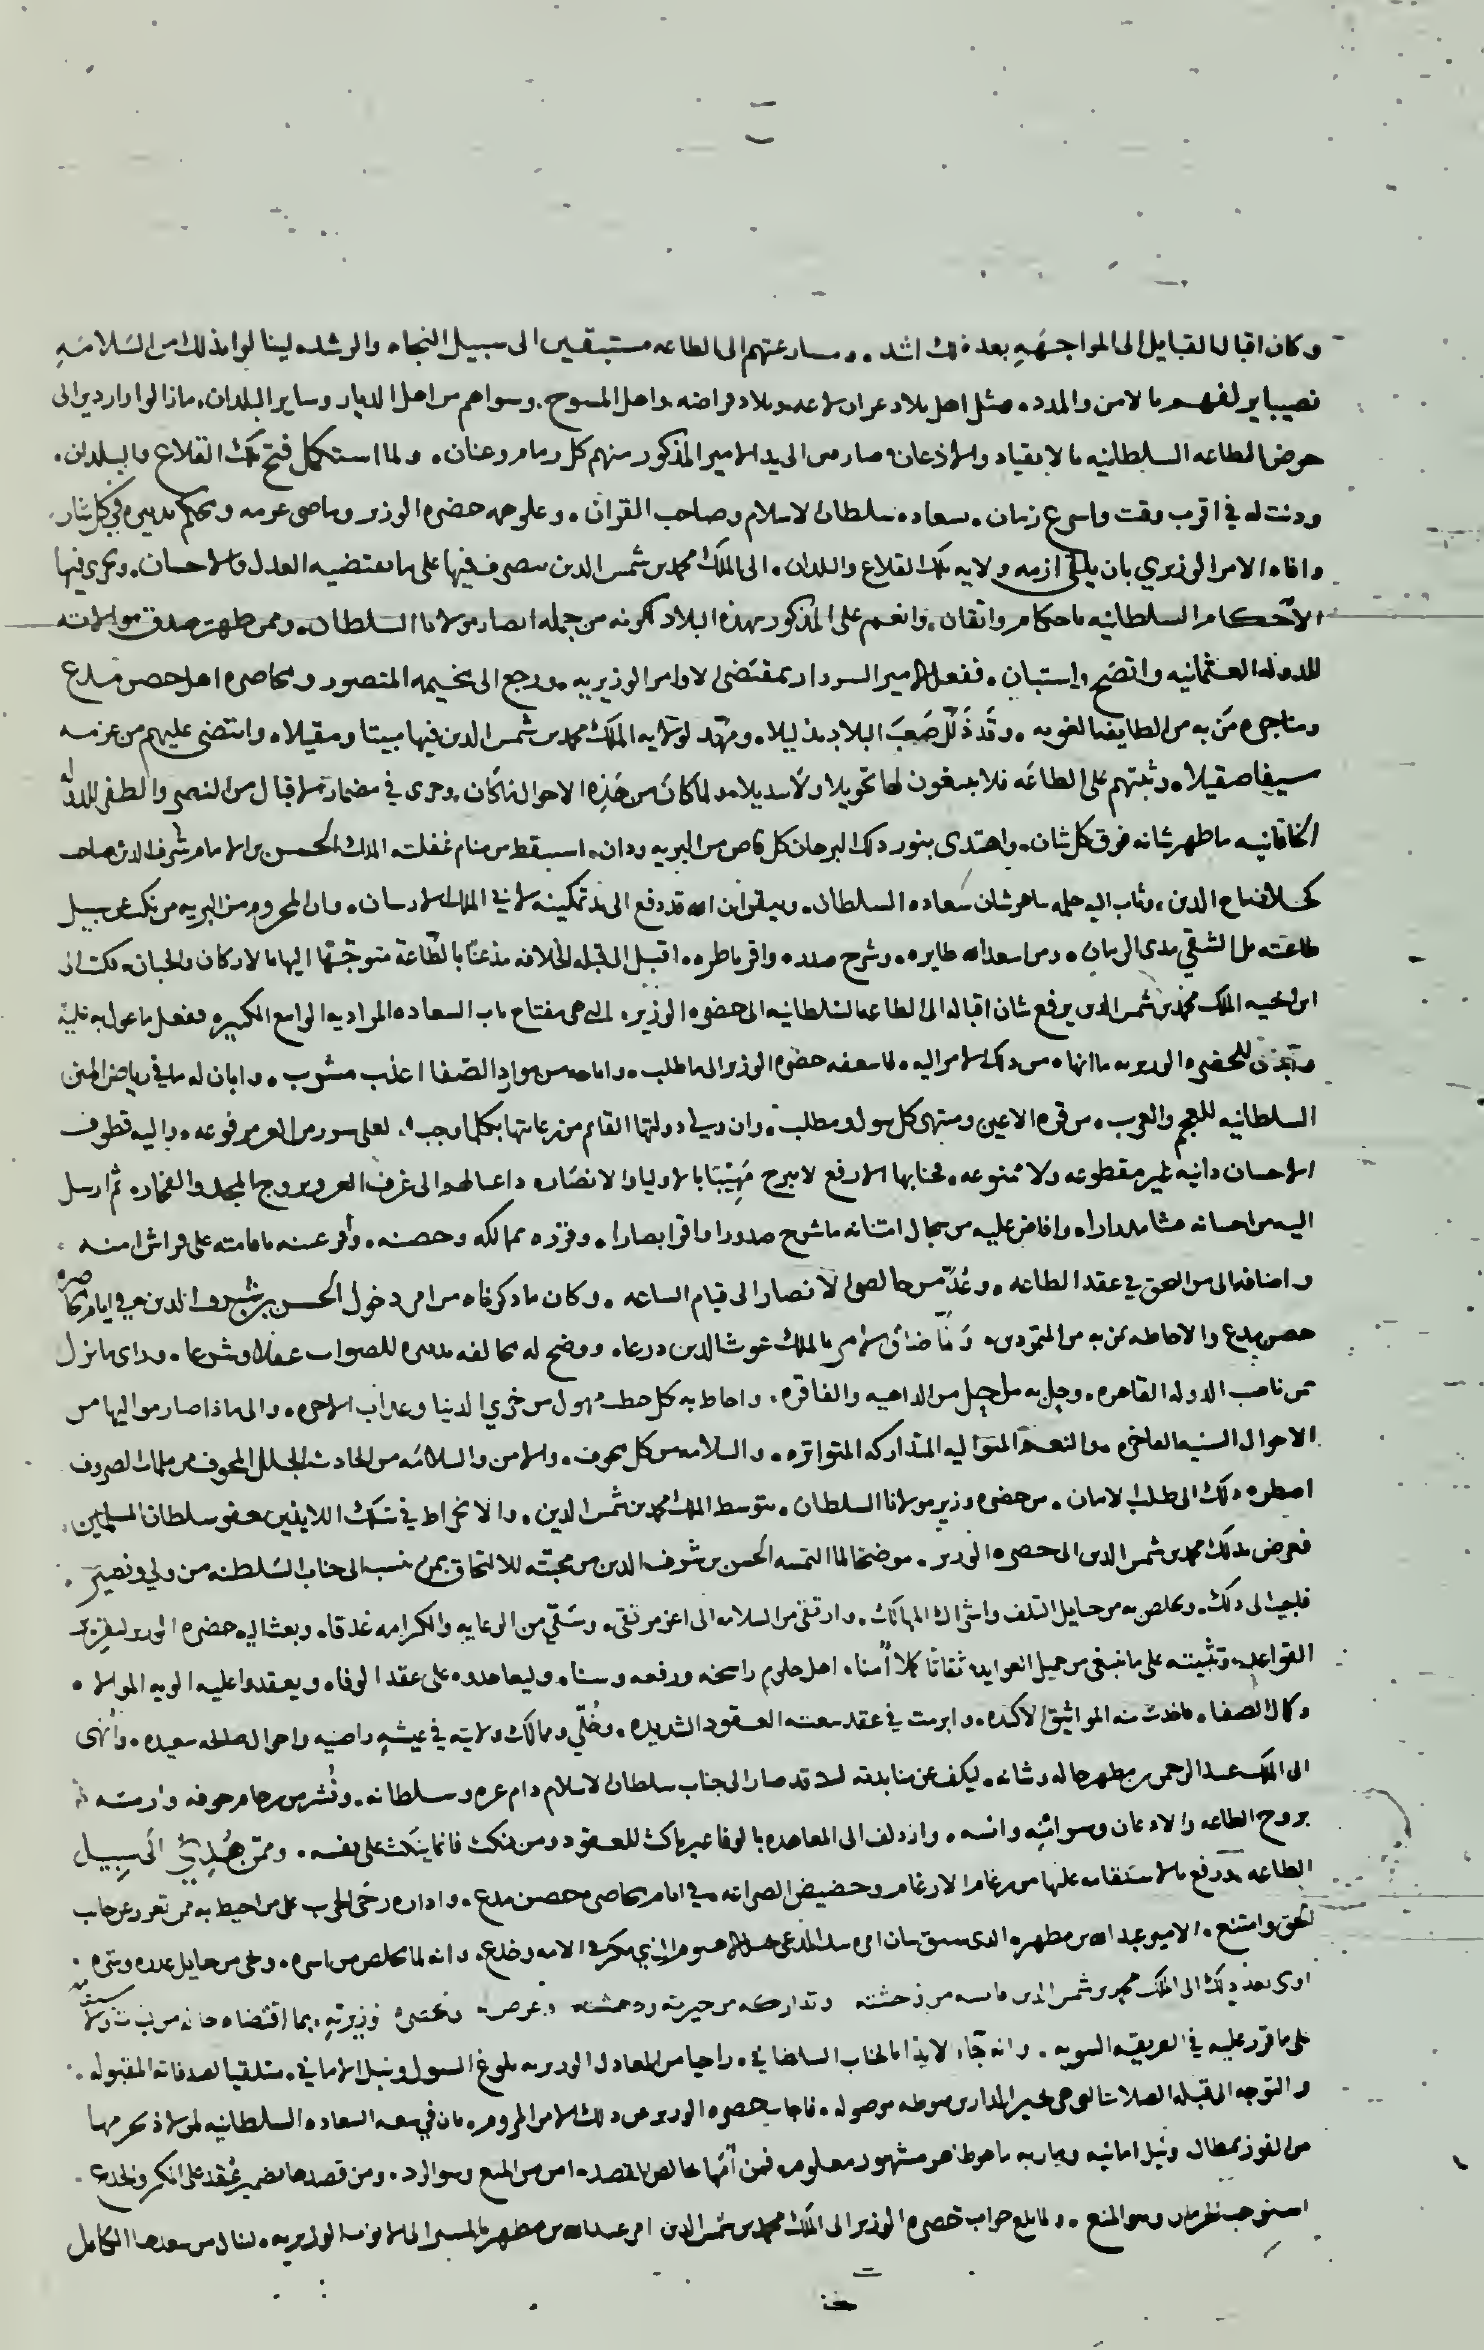 وكان اقبال القبايل الى المواجهه بعد ذلك اشد. ومسارعتهم الى الطاعه مستبقين الى سبيل النجاه والرشد. لينالوا بذلك من السلامه
نصيبا يرلفهم بالامن والمدد. مثل اهل بلاد وبلاد قراضه واهل المسوح. وسواهم من اهل الديار وساير البلدان. مازالوا واردين الى
حوض الطاعه السلطانيه بالانقياد والاذعان وصار من الى يد الامير المذكور منهم كل زمام وعنان. ولما استكمل فتح تلك القلاع والبلدان.
ودنت له في اقرب وقت واسرع زمان. بسعاده سلطان الاسلام وصاحب القران. وعلو همه حضره الوزير وماضي عزمه وبحكم تدبيره في كل شان.
وافاه الامر الوزيري بان يلقي ازمه ولايه تلك القلاع والبلدان. الى الملك محمد بن شمس الدين يتصرف فيها على ما يقتضيه العدل والاحسان. ويجرى فيها
الاحكام السلطانيه باحكام واتقان. وانعم على المذكور بهذه البلاد لكونه من جمله انصار مولانا السلطان. وممن ظهرت صدق موالاته
للدوله العثمانيه واتضح واستبان. ففعل الامير السردار بمقتضى الاوامر الوزيريه. ورجع الى مخيمه المنصور ومحاصره اهل حصن مدع
ومناجزه من به من الطايفه الغويه. وقد ذلل صعب البلاد تذليلا. ومهد لولايه الملك محمد بن شمس الدين فيها مبيتا ومقيلا. وانتضى عليهم من عزمه
سيفا صقيلا. وثبتهم على الطاعه فلا يبغون لها تحويلا ولا تبديلا. ولما كان من هذه الاحوال ما كان. وجرى في مضمار الاقبال من النصر والظفر للدوله
الخاقانيه ما ظهر شانه فوق كل شان. واهتدى بنور ذلك البرهان كل قاص من البريه ودان. استيقظ من منام غفلته الملك الحسن بن الامام شرف الدين صاحب
الدين. وثاب اليه حلمه سعاده السلطان. وتيقن ان الله قد دفع الى يد تمكينه في الملك الارسان. وان المحروم من البريه من نكب عن سبيل
طاعته بل الشقي مدى الزمان. ومن اسعد الله طايره. وشرح صدره واقر ناظره. اقبل الى قبله الخلافه مذعنا بالطاعه متوجها اليها بالاركان والجنان. فكتب الى
ابن اخيه الملك محمد بن شمس الدين يرفع شان اقباله الى الطاعه السلطانيه الى حضره الوزير. التي هي مفتاح باب السعاده المراديه الواسع الكبير. ففعل ما عول به عليه
للحضره الوزيريه ما انهاه من ذلك الامر اليه. فاسعفه حضره الوزير الى ما طلب. واباحه من موارد الصفا اعذب مشرب. وابان له ما في رياض المنن
السلطانيه للعجم والعرب. من قره الاعين ومنتهى كل سول ومطلب. وان دولتها القايم من رعايتها بكلما وجب. لعلى سرر من العز مرفوعه. واليه قطوف
الاحسان دانيه غير مقطوعه ولا ممنوعه. الارفع لا يبرح بالاوليا والانصار. داعيا لهم الى غرف العز وبروج المجد والفخار. ثم ارسل
اليه من احسانه مدرارا. وافاض عليه من سجال امتنانه ما شرح صدورا واقر ابصارا. وقرره بممالكه وحصنه. واقر عينه باقامته على فراش امنه
واضافه الى من التحق في عقد الطاعه. وعد من خالصي الانصار الى قيام الساعه. وكان ما ذكرناه من امر دخول الحسن بن شرف الدين في ايام محاصره
حصن مدع والاحاطه بمن به من المتمردين. ولما ضاق الامر بالملك غوث الدين ذرعا. ووضح له مخالفه للصواب عقلا وشرعا. وراى ما نزل
بمن ناصب الدوله القاهره. وحل به ما حل من الداهيه والفاقره. واحاط به كل خطب مهول من خزي الدنيا وعذاب الاخره. والى ماذا صار مواليها من
الاحوال السنيه الفاخره. والنعم المتواليه المتداركه المتواتره. والسلامه من كل مخوف. والامن والسلامه من الحادث الجلل المخوف من ملمات الصروف
اضطره ذلك الى طلب الامان. من حضره وزير مولانا السلطان. بتوسط الملك محمد بن شمس الدين. والانخراط في سلك اللايذين بعفو سلطان المسلمين.
فعرض بذلك محمد بن شمس الدين الى حضره الوزير. موضحا لما التمسه الحسن بن شرف الدين من محبته للالتحاق بمن نسب الى جناب السلطنه من ولي ونصير.
فاجيب الى ذلك. وتخلص به من حبايل التلف واشراك المهالك. وارتقى من السلامه الى اعز مرتقى. وسقي من الرعايه والكرامه غدقا. وبعث اليه حضره الوزير لتقرير
القواعد. وتثبيته على ما ينبغي من جميل العوايد. ثقاتا كلا امنا. اهل حلوم راسخه ورفعه وسنا. وليعاهدوه على عقد الوفاء ويعقدوا عليه الويه الموالاه
وكمال الصفا. فاخذت منه المواثيق الاكيده. وابرمت في عقد بيعته العقود الشديده. وخلي وممالك ولايته في عيشه راضيه واحوال صالحه سعيده. وانهى
الى الملك عبد الرحمن بن مطهر حاله وشانه. ليكف عن منابذته لانه قد صار الى جناب سلطان الاسلام دام عزه وسلطانه. ونشر من خوفه وارمسه
بروح الطاعه والاذعان وانسه. وازدلف الى المعاهده بالوفا غير ناكث للعقود ومن نكث فانما ينكث على نفسه. وممن هدي الى سبيل
الطاعه ورفع بالاستقامه عليها من رغام الارغام وحضيض الضراعه. في ايام محاصره حصن مدع. واداره رحى الحرب على من احيط به ممن تمرد عن جانب
الحق وامتنع. الامير عبد الله بن مطهر. الذى سبق بيان الذي مكر في الامه وخدع. وانه لما تخلص من اسره. ونجى من حبايل غدره
اوى بعد ذلك الى الملك محمد بن شمس الدين فانسه من وحشته وتداركه من حيرته ودهشته وعرض وزيريه بما اقتضاه حاله من
على ما قرر عليه في الطريقه السويه. وانه جاء لايذا بالجناب السلطاني. راجيا من المعادل الوزيريه بلوغ السول ونيل الاماني. متلقيا لصدقاته المقبوله
والتوجه الى قبله الصلات التي هي بخير الدارين منوطه موصوله. فاجاب حضره الوزير عن ذلك الامر المروم. بان في السعاده السلطانيه لمن لاذ بحرمها
من الفوز بمطالبه ونيل امانيه وماربه ما هو ظاهر مشهور معلوم. فمن امها خالص المقصد. امن من المنع وسو الرد. ومن قصدها بضمير عقد على المكر والخدع
استوجب الحرمان وسو المنع. ولما بلغ جواب حضره الوزير الى الملك محمد بن شمس الدين امر عبد الله بن مطهر بالمسير الى الوزيريه. لينال من سعدها الكامل